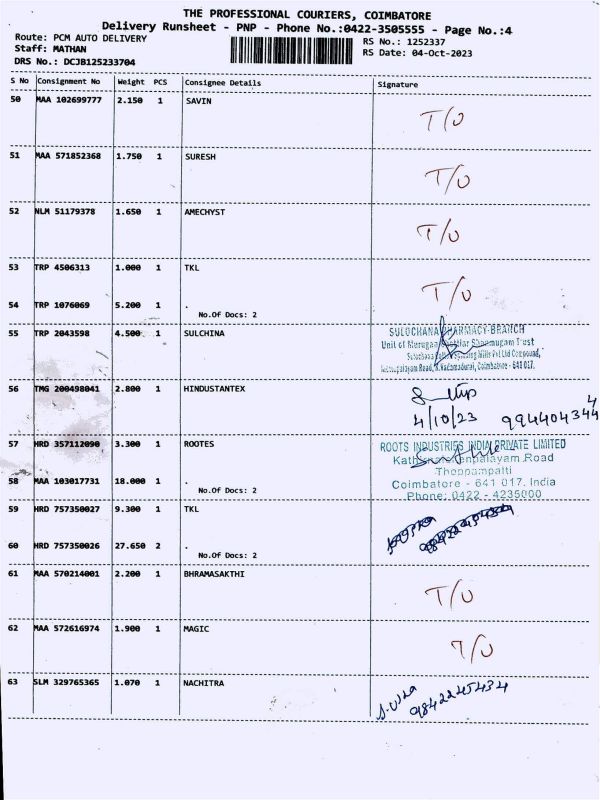 THE PROFESSIONAL COURIERS, COIMBATORE
Delivery Runsheet - PNP - Phone No.:0422-3505555 - Page No.:4
Route: PCM AUTO DELIVERY
RS No.: 1252337
Staff: MATHAN
RS Date: 04-Oct-2023
DRS No.: DCJB125233704
S No Consignment No Weight PCS Consignee Details Signature
50 MAA 102699777 2.150 1 SAVIN T/O
51 MAA 571852368 1.750 1 SURESH T/O
52 NLM 51179378 1.650 1 AMECHYST T/O
53 TRP 4506313 1.000 1 TKL T/O
54 TRP 1076069 5.200 1 .
No.Of Docs: 2
55 TRP 2043598 4.500 1 SULCHINA
SULOCHANA PHARMACY-BRANCH
Unit of Shanmugam Trust
Mills Pvt Ltd Compound,
Road, Coimbatore - 641 017.
56 TMG 200498041 2.800 1 HINDUSTANTEX
4/10/23 9944043444
57 HRD 357112090 3.300 1 ROOTES
ROOTS INDUSTRIES INDIA PRIVATE LIMITED
Road
Thoppampatti
58 MAA 103017731 18.000 1 .
Coimbatore - 641 017. India
No.Of Docs: 2
Phone: 0422 - 4235000
59 HRD 757350027 9.300 1 TKL
60 HRD 757350026 27.650 2 .
No.Of Docs: 2
61 MAA 570214001 2.200 1 BHRAMASAKTHI T/O
62 MAA 572616974 1.900 1 MAGIC T/O
63 SLM 329765365 1.070 1 NACHITRA
9842245434